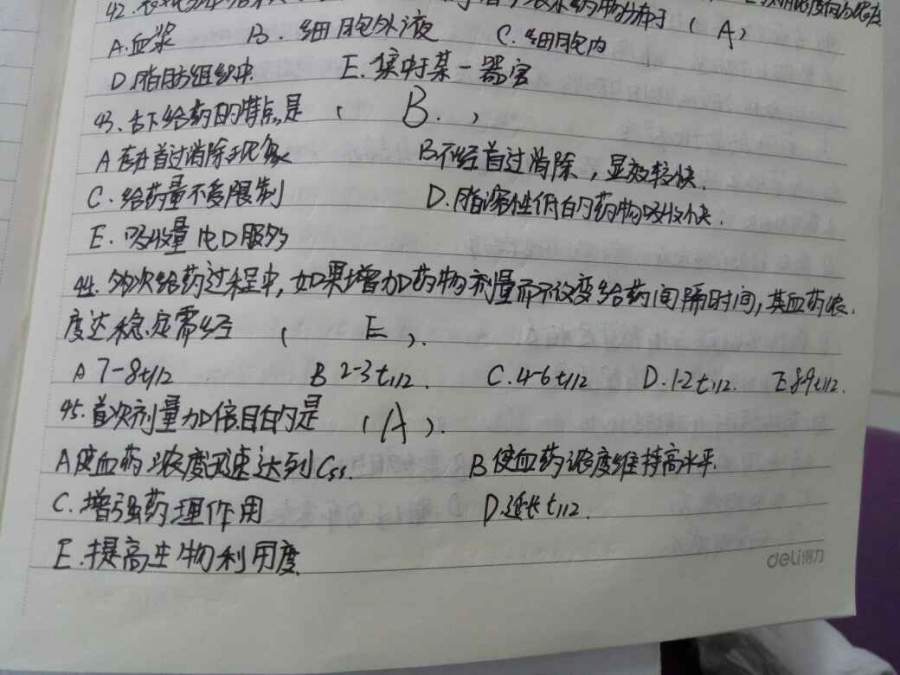 42.
( A )
A.血浆 B.细胞外液 C.细胞内
D.脂肪组织中 E.集中于某一器官
43.舌下给药的特点是 ( B. )
A 存在首过消除现象 B 不经首过消除，显效较快.
C.给药量不受限制 D.脂溶性低的药物吸收快.
E.吸收量比口服多
44.多次给药过程中，如果增加药物剂量而不改变给药间隔时间，其血药浓
度达稳定需经 ( E ).
A 7-8t1/2 B 2-3t1/2. C.4-6t1/2 D.1-2t1/2. E 8-9t1/2.
45.首次剂量加倍目的是 ( A ).
A 使血药浓度迅速达到Css. B 使血药浓度维持高水平.
C.增强药理作用 D.延长t1/2.
E.提高生物利用度
deli得力